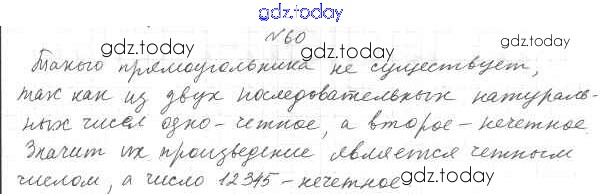 gdz.today
№60
gdz.today gdz.today
Такого прямоугольника не существует,
так как из двух последовательных натураль-
ных чисел одно-четное, а второе-нечетное.
gdz.today gdz.today
Значит их произведение является четным
числом, а число 12345-нечетное
gdz.today